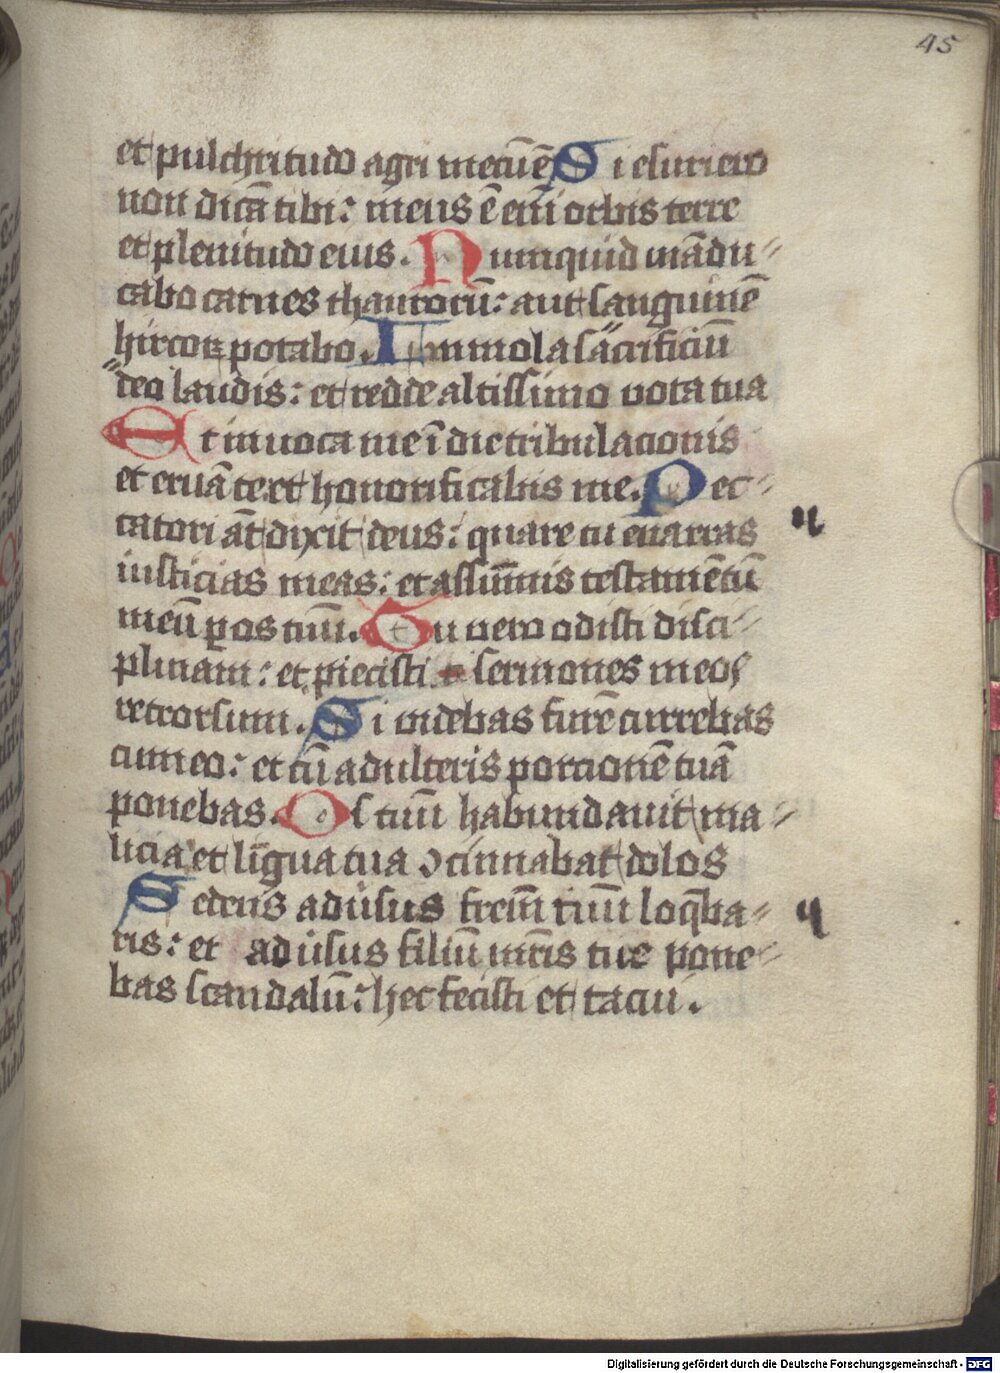 45
et pulchritudo agri mecū ē Si esuriero
non dicā tibi: meus ē eni̅ orbis terre
et plenitudo eius. Numquid mādu-
cabo carnes thaurorū: aut sanguinē
hircoꝝ potabo. Immola sacrificiū
deo laudis: et redde altissimo vota tua
Et invoca me ī die tribulacionis
et eruā te et honorificabis me. Pec-
catori at̅ dixit deus: quare tu enarras
iusticias meas: et assum̅is testamētū
meū ꝑ os tuū. Tu vero odisti disci-
plinam: et piecisti sermones meos
retrorsum. Si videbas furē currebas
cum eo: et cū adulteris porcionē tuā
ponebas. Os tuū habundavit ma-
licia et līgua tua ꝯcinnabat dolos
Sedens adv̓sus frēm tuū loq̄ba-
ris: et adv̓sus filiū mr̅is tue pone-
bas scandalū: hec fecisti et tacui.
Digitalisierung gefördert durch die Deutsche Forschungsgemeinschaft - DFG